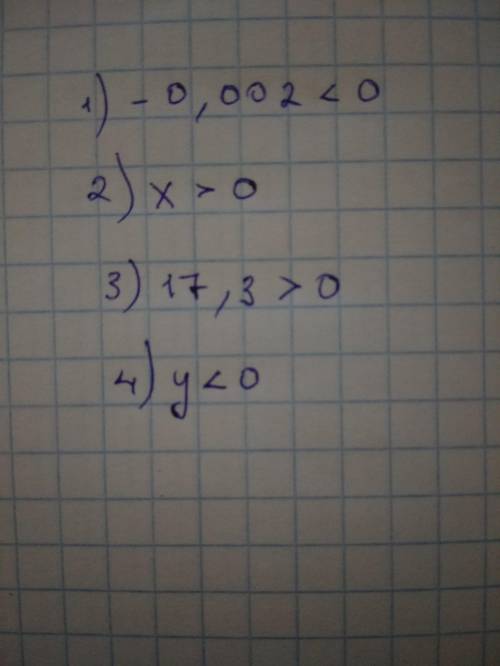 1) - 0,002 < 0
2) x > 0
3) 17,3 > 0
4) y < 0